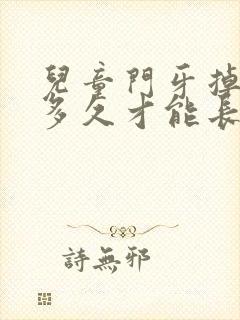 兒童門牙掉
多久才能長
詩無邪